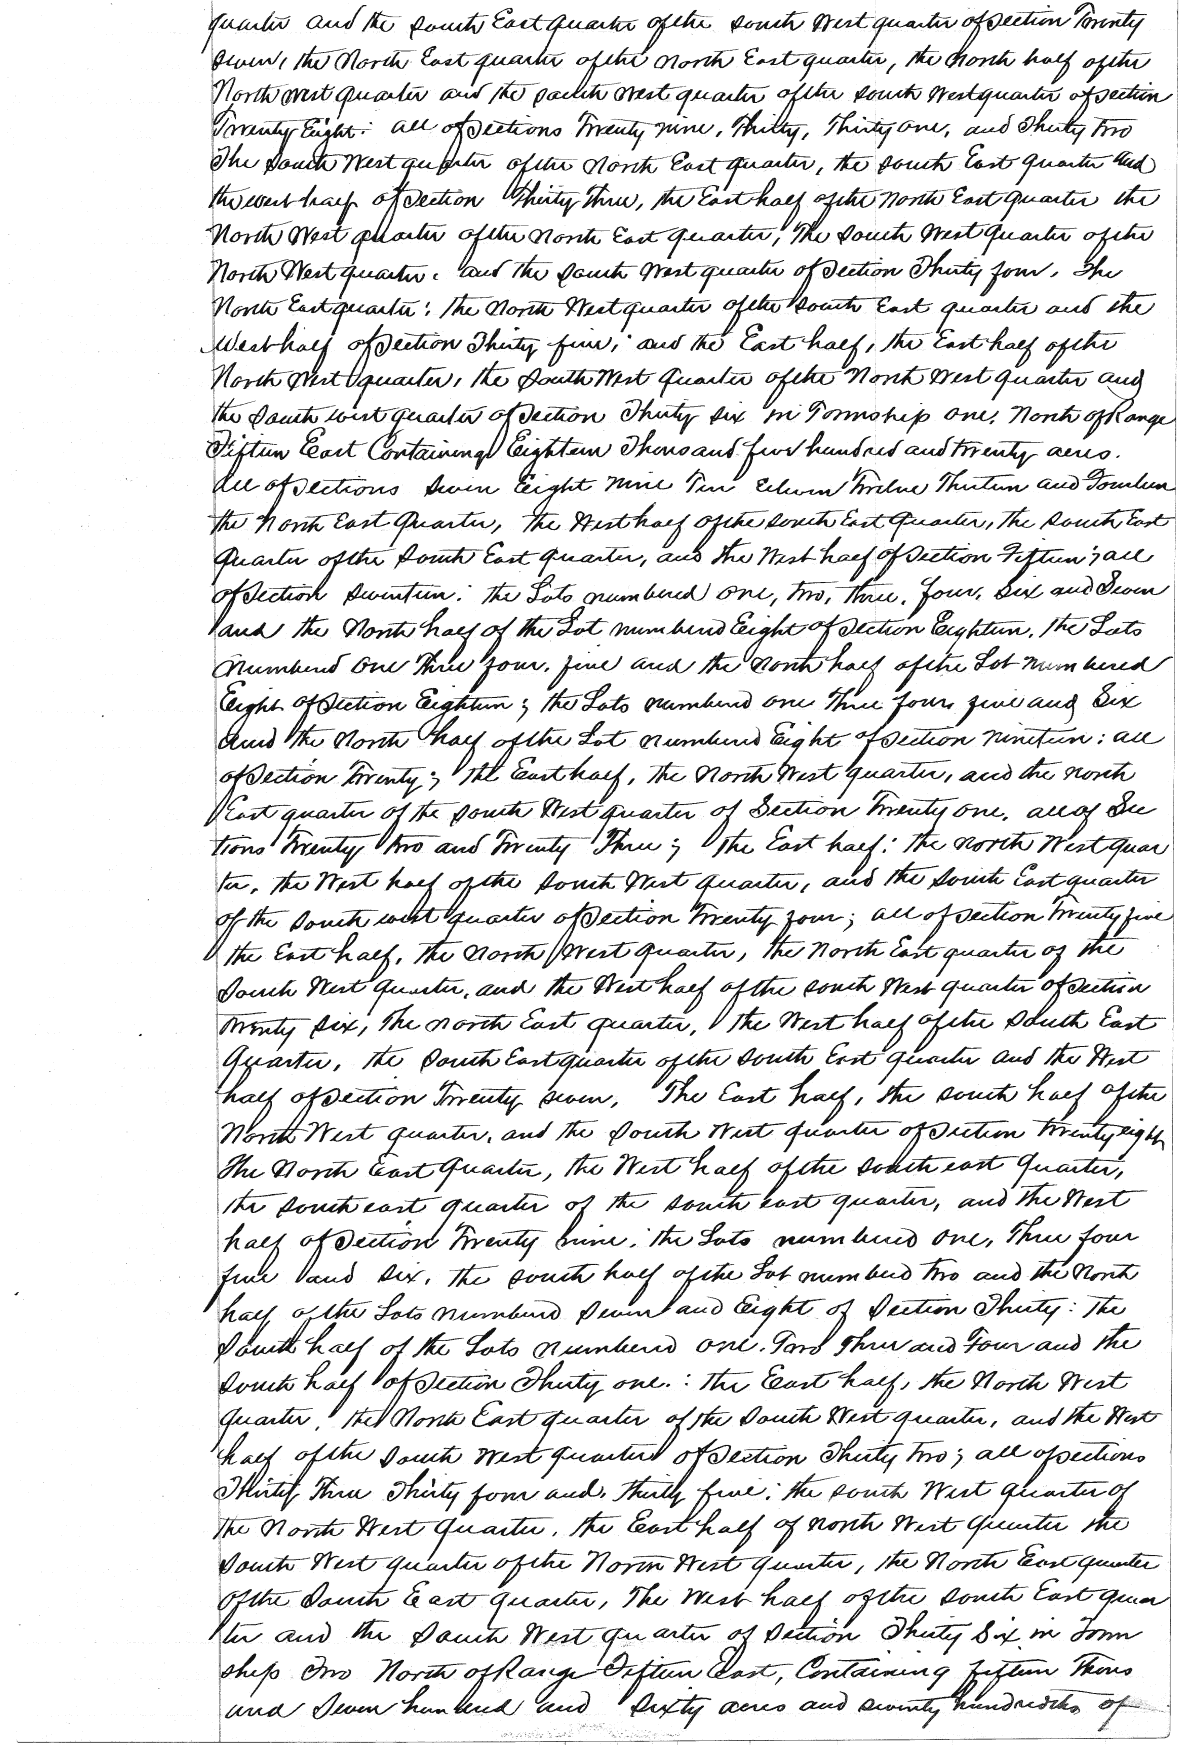 quarter and the South East quarter of the South West quarter of Section Twenty
Seven, the North East quarter of the North East quarter, the North half of the
North West quarter and the South West quarter of the South West quarter of Section
Twenty Eight: all of Sections Twenty nine, Thirty, Thirty one, and Thirty two
The South West quarter of the North East quarter, the South East quarter and
the west half of Section Thirty Three, the East half of the North East quarter the
North West quarter of the North East quarter, The South West quarter of the
North West quarter. and the South West quarter of Section Thirty four. The
North East quarter: the North West quarter of the South East quarter and the
West half of Section Thirty five; and the East half, the East half of the
North West quarter, the South West quarter of the North West quarter and
the South west quarter of Section Thirty Six in Township one, North of Range
Fifteen East Containing Eighteen Thousand five hundred and twenty acres.
All of Sections Seven Eight Nine Ten Eleven Twelve Thirteen and Fourteen
the North East Quarter, the West half of the South East Quarter, the South East
Quarter of the South East Quarter, and the West half of Section Fifteen; all
of Section Seventeen: the Lots numbered one, two, three, four, Six and Seven
and the North half of the Lot numbered Eight of Section Eighteen. the Lots
Numbered One Three four. five and the North half of the Lot numbered
Eight of Section Eighteen; the Lots numbered one Three four five and Six
And the North half of the Lot numbered Eight of Section nineteen: all
of Section Twenty; the East half, the North West quarter, and the north
East quarter of the South West quarter of Section Twenty one. all of Sec
tions Twenty two and Twenty Three; the East half: the north West quar
ter, the West half of the South West quarter, and the South East quarter
of the South west quarter of Section Twenty four; all of Section Twenty five
the East half, the North West quarter, the North East quarter of the
South West quarter, and the West half of the South West quarter of Section
Twenty Six, The North East quarter, the West half of the South East
Quarter, the South East quarter of the South East quarter and the West
half of Section Twenty seven, The East half, the South half of the
North West quarter, and the South West quarter of Section twenty eight
The North East Quarter, the West half of the South east Quarter,
the South east quarter of the South east quarter, and the West
half of Section Twenty nine. the Lots numbered one, Three four
five and Six, the South half of the Lot numbered two and the North
half of the Lots Numbered Seven and Eight of Section Thirty: the
South half of the Lots Numbered one. Two Three and Four and the
South half of Section Thirty one.: the East half, the North West
Quarter, the North East quarter of the South West quarter, and the West
half of the South West quarter of Section Thirty two; all of Sections
Thirty Three Thirty four and Thirty five; the South West quarter of
the North West quarter. the East half of North West quarter the
South West quarter of the North West quarter, the North East quarter
of the South East quarter, The West half of the South East quar
ter and the South West quarter of Section Thirty Six in Town
ship Two North of Range Fifteen East, Containing fifteen Thous
and Seven hundred and Sixty acres and seventy hundredths of